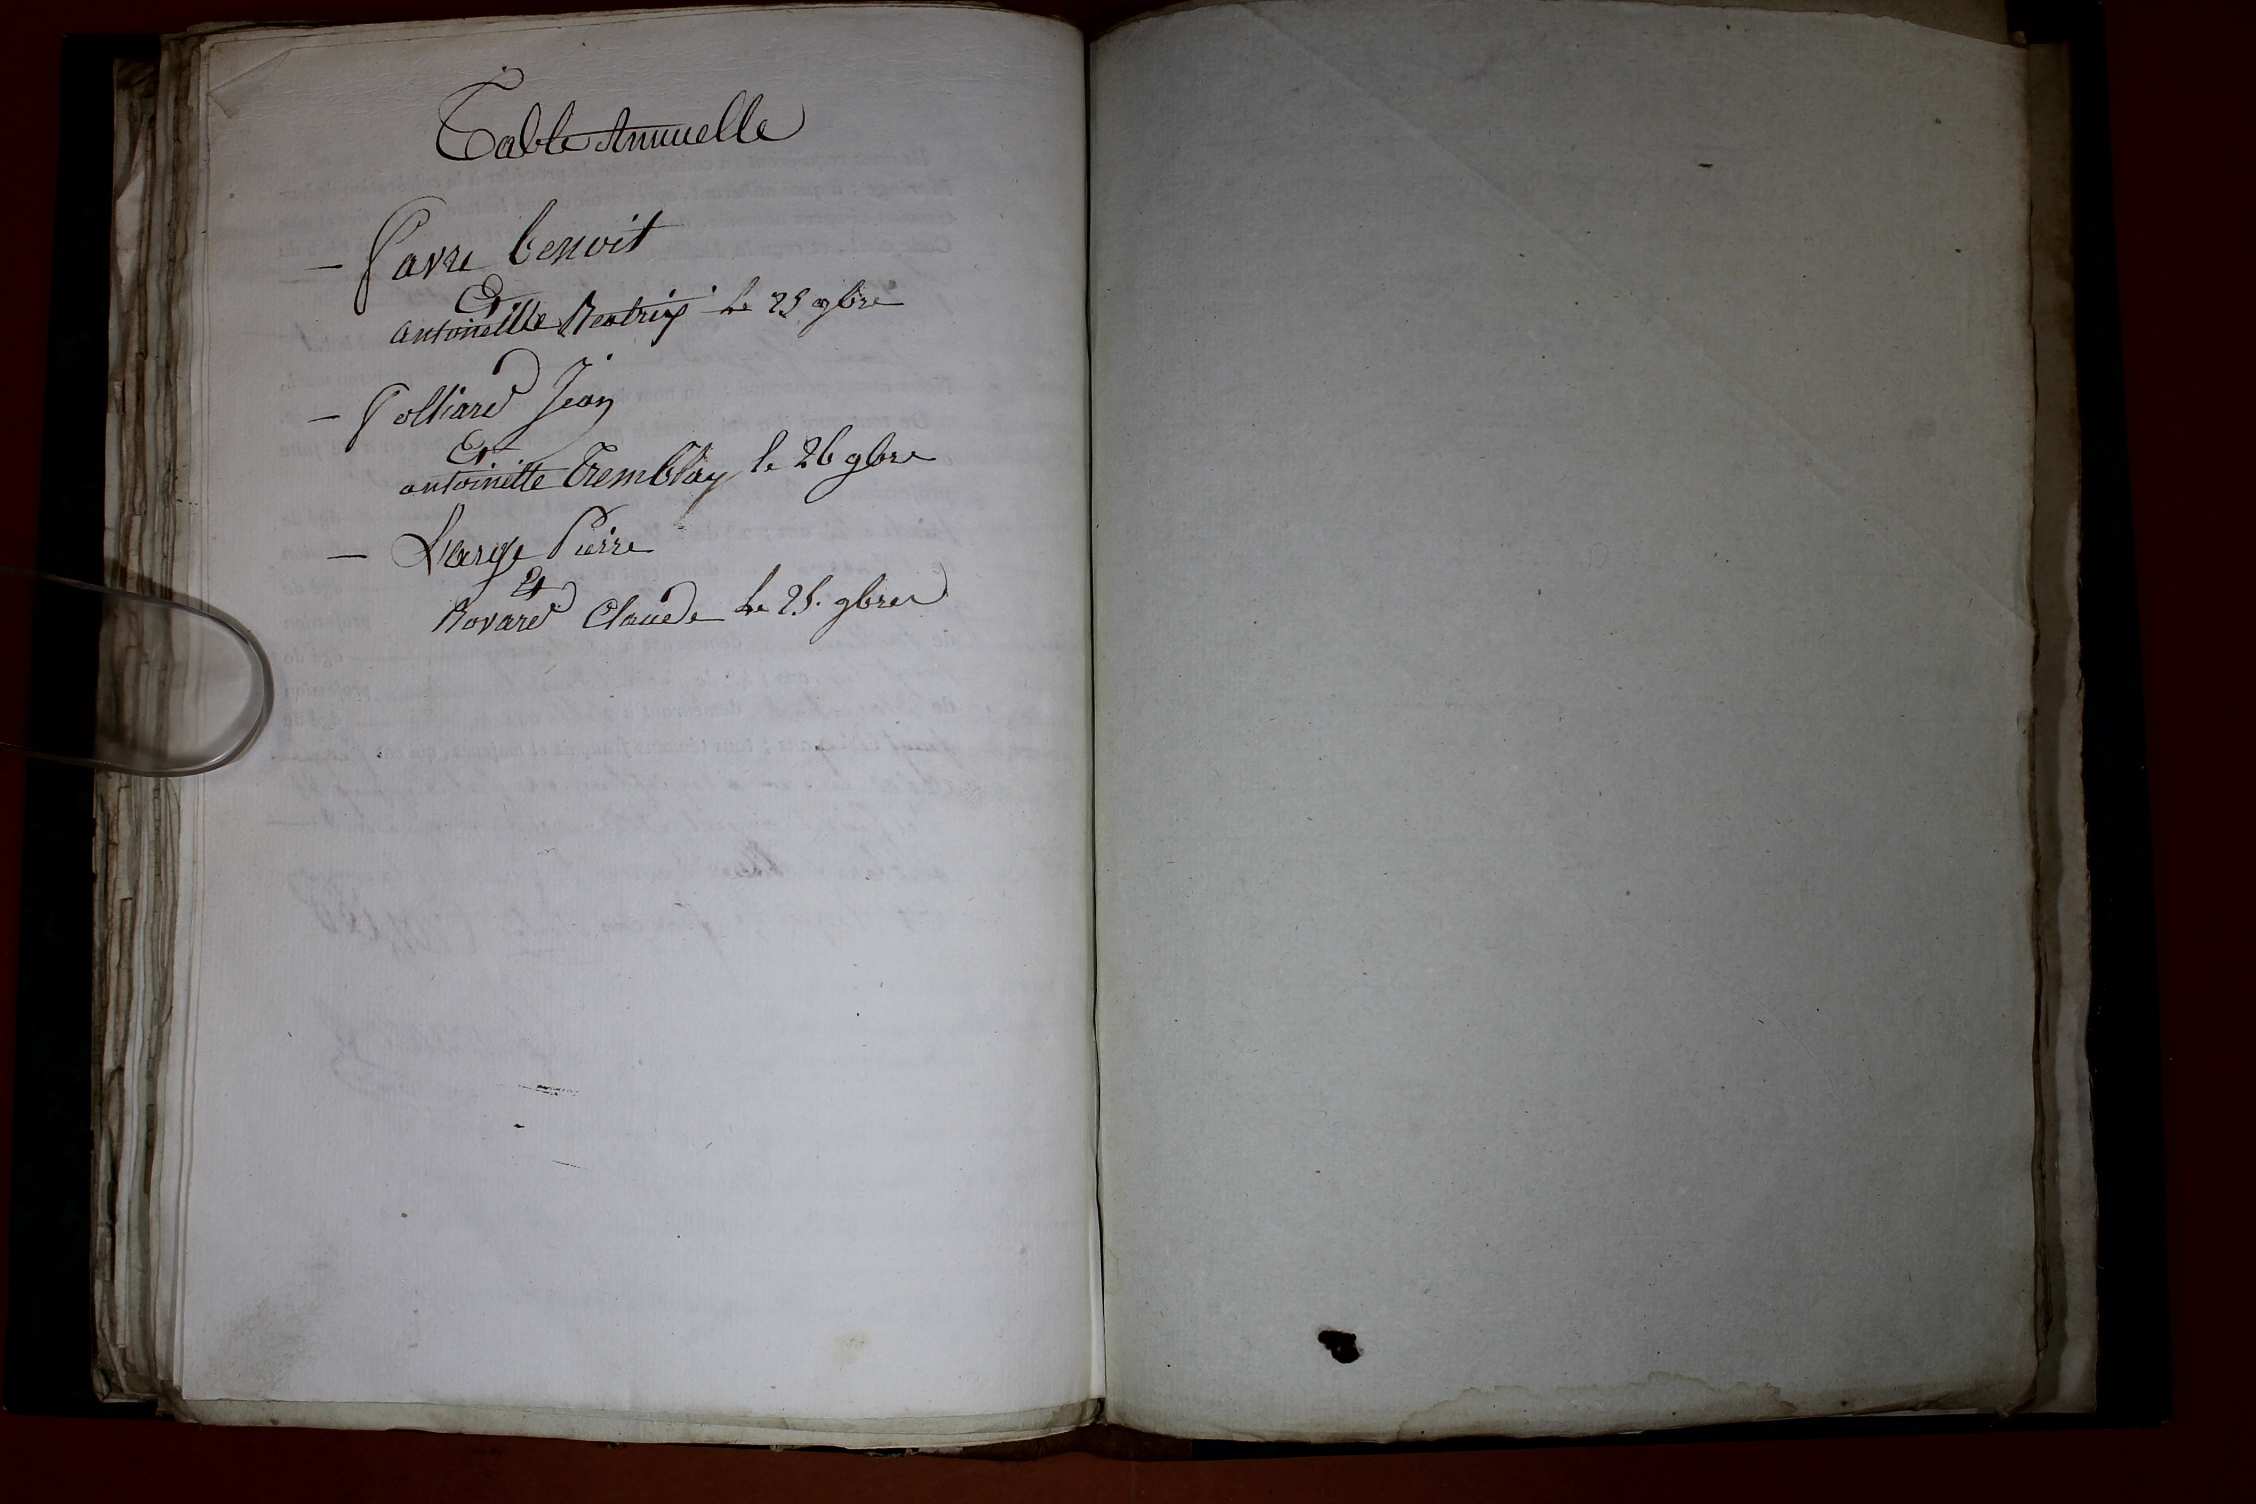 Table Annuelle
— Favre benoit
Et
antoinette Beatrix le 25 9bre
— Golliard Jean
Et
antoinette Tremblay le 26 9bre
— Large Pierre
Et
Rovard Claude le 25. 9bre